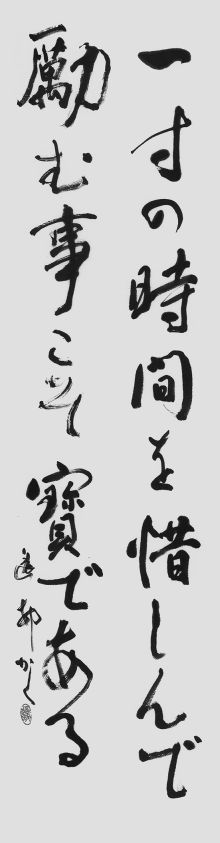 一寸の時間を惜しんで
勵む事こそ寶である
かく